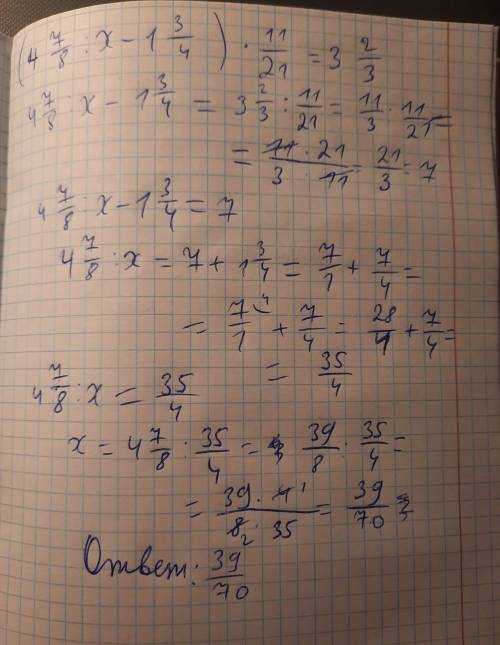 (4 7/8 : x - 1 3/4) · 11/21 = 3 2/3
4 7/8 : x - 1 3/4 = 3 2/3 : 11/21 = 11/3 · 11/21 =
= 11 · 21 / 3 · 11 = 21/3 = 7
4 7/8 : x - 1 3/4 = 7
4 7/8 : x = 7 + 1 3/4 = 7/1 + 7/4 =
= 7/1 + 7/4 = 28/4 + 7/4 =
= 35/4
4 7/8 : x = 35/4
x = 4 7/8 : 35/4 = 39/8 : 35/4 =
= 39 · 4 1 / 8 2 · 35 = 39/70
Ответ: 39/70